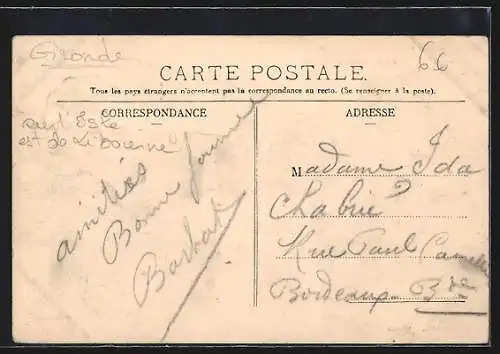 Gironde
66
CARTE POSTALE.
Tous les pays étrangers n'acceptent pas la correspondance au recto. (Se renseigner à la poste).
CORRESPONDANCE
ADRESSE
sur l'Isle
est de Libourne
amitiés
Bonne journée
Madame Ida
Rue Paul
Bordeaux